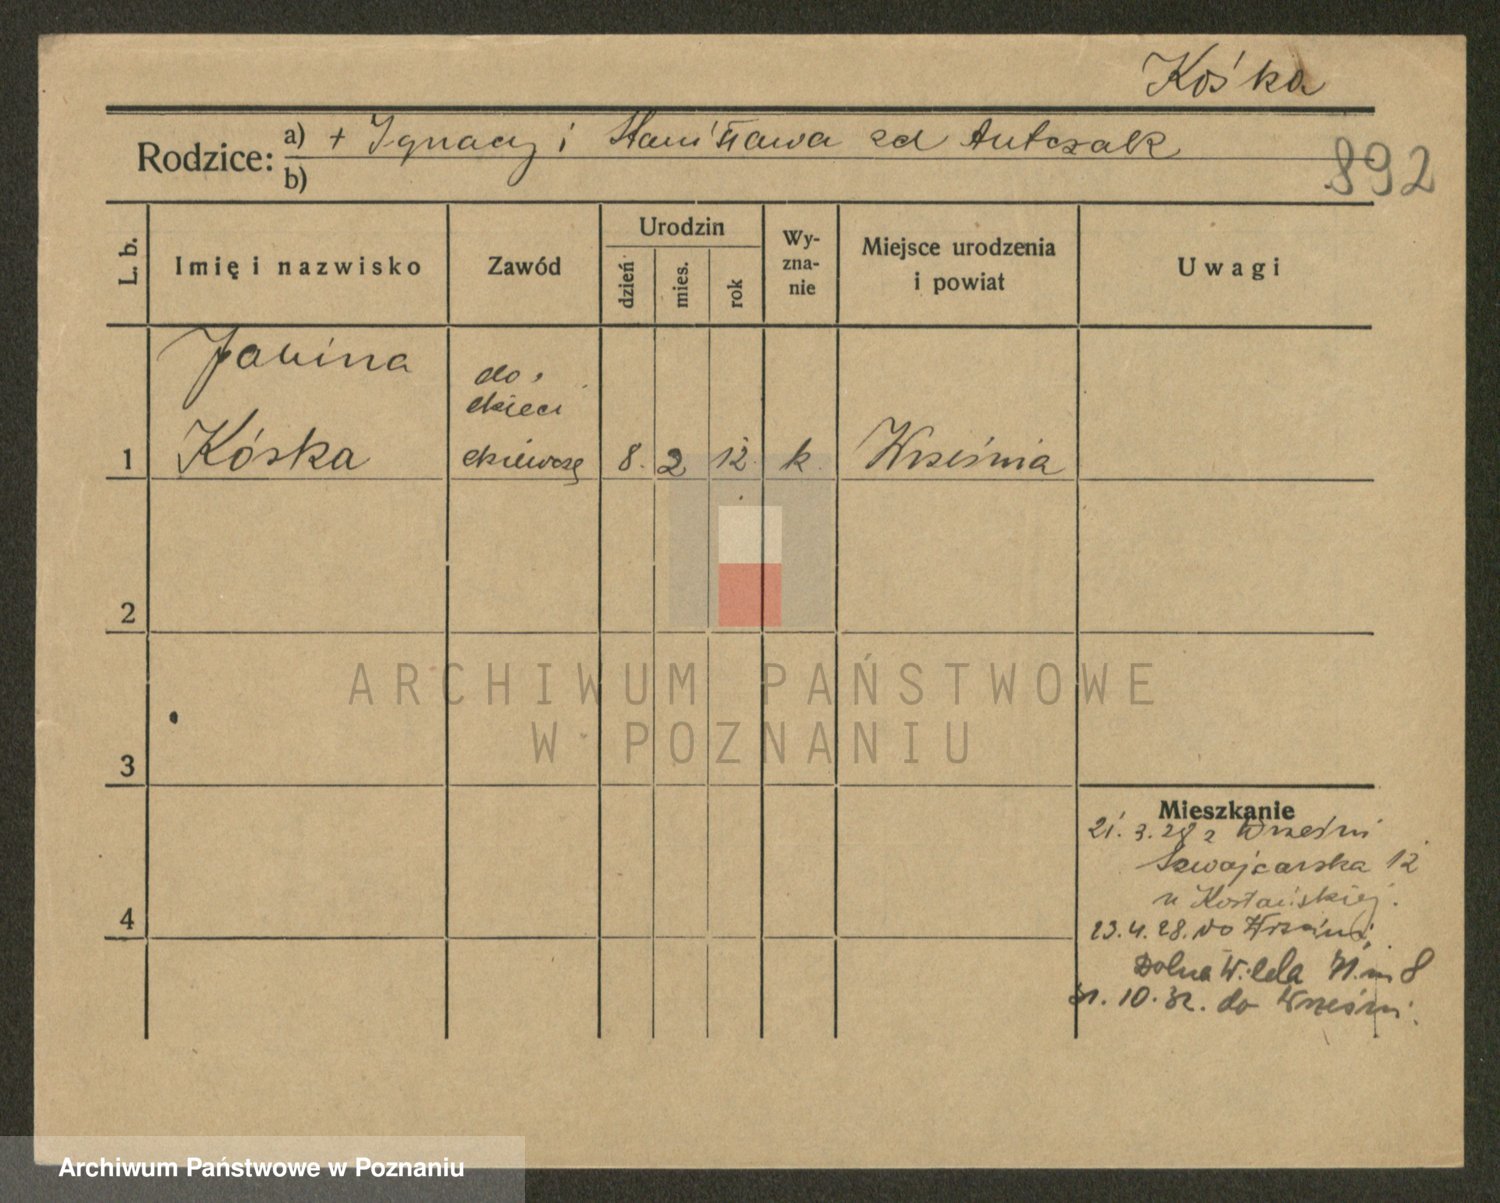 Kośka
Rodzice: a) + Ignacy i Stanisława zd Antczak
b)
892
L. b.
Imię i nazwisko
Zawód
Urodzin
dzień
mies.
rok
Wy-
zna-
nie
Miejsce urodzenia
i powiat
Uwagi
Janina
do
dzieci
1 Kóska dziewczę 8. 2 12. k. Września
2
ARCHIWUM PAŃSTWOWE
W POZNANIU
3
Mieszkanie
21. 3. 28 z Wrześni
Szwajcarska 12
u
4
23. 4. 28. do Wrześni
Dolna Wilda m 8
10. 32. do Wrześni
Archiwum Państwowe w Poznaniu